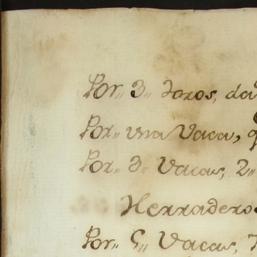 Por,, 3,, toros, da
Por,, una Vaca, q
Por,, 3,, Vacas, 2,,
Herradero
Por,, 5,, Vacas, 7